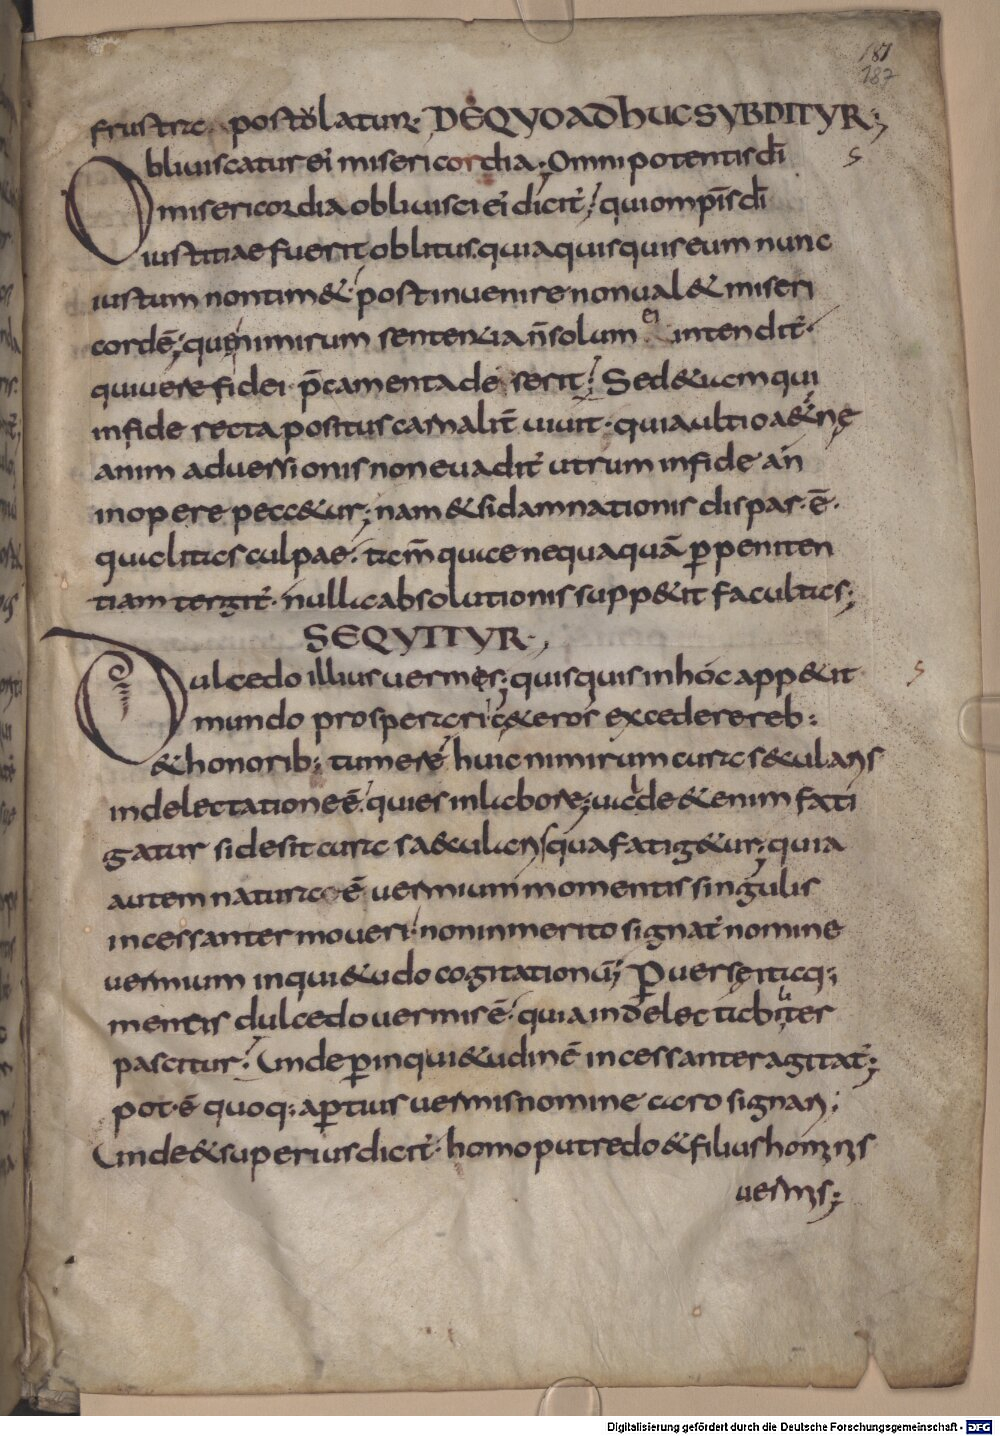 187
187
frustra postolatur. DE QVO ADHUC SVBDITVR;
Obliuiscatur ei misericordia; Omnipotentis dī
misericordia obliuisci ei dicit̄; qui omp̄is dī
iustitiae fuerit oblitus. quia quisquis eum nunc
iustum non tim&; post inuenire non ual& miseri
cordē; que nimirum sententia n̄ solum ei intendit̄.
qui uere fidei p̄camenta deserit; Sed & eum qui
in fide recta positus carnalit̄ uiuit. quia ultio a&ernę
animaduersionis non euadit̄ utrum in fide an
in opere pecc&ur; nam & si damnationis dispar. ē.
qualitas culpae. tam̄ quae nequaquā p peniten
tiam tergit̄. nulla absolutionis supp&it facultas;
SEQVITVR.
Dulcedo illius uermes; quisquis in hoc app&it
mundo prosperari. c&eros excedere reb:
& honorib: tumere; huic nimirum cura secularis
in delectatione ē. quies in labore; ualde & enim fati
gatur si desit cura saecularis qua fatig&ur; quia
autem natura ē uermium momentis singulis
incessanter moueri. non inmerito signat̄ nomine
uermium inqui&udo cogitationū; Puerse itaq;
mentis dulcedo uermis ē. quia in delectabiliter
pascitur. Unde p inqui&udinē incessanter agitat̄;
pot. ē quoq; aptius uermis nomine caro signari;
Unde & superius dicit̄. homo putredo & filius hominis
uermis;
Digitalisierung gefördert durch die Deutsche Forschungsgemeinschaft - DFG